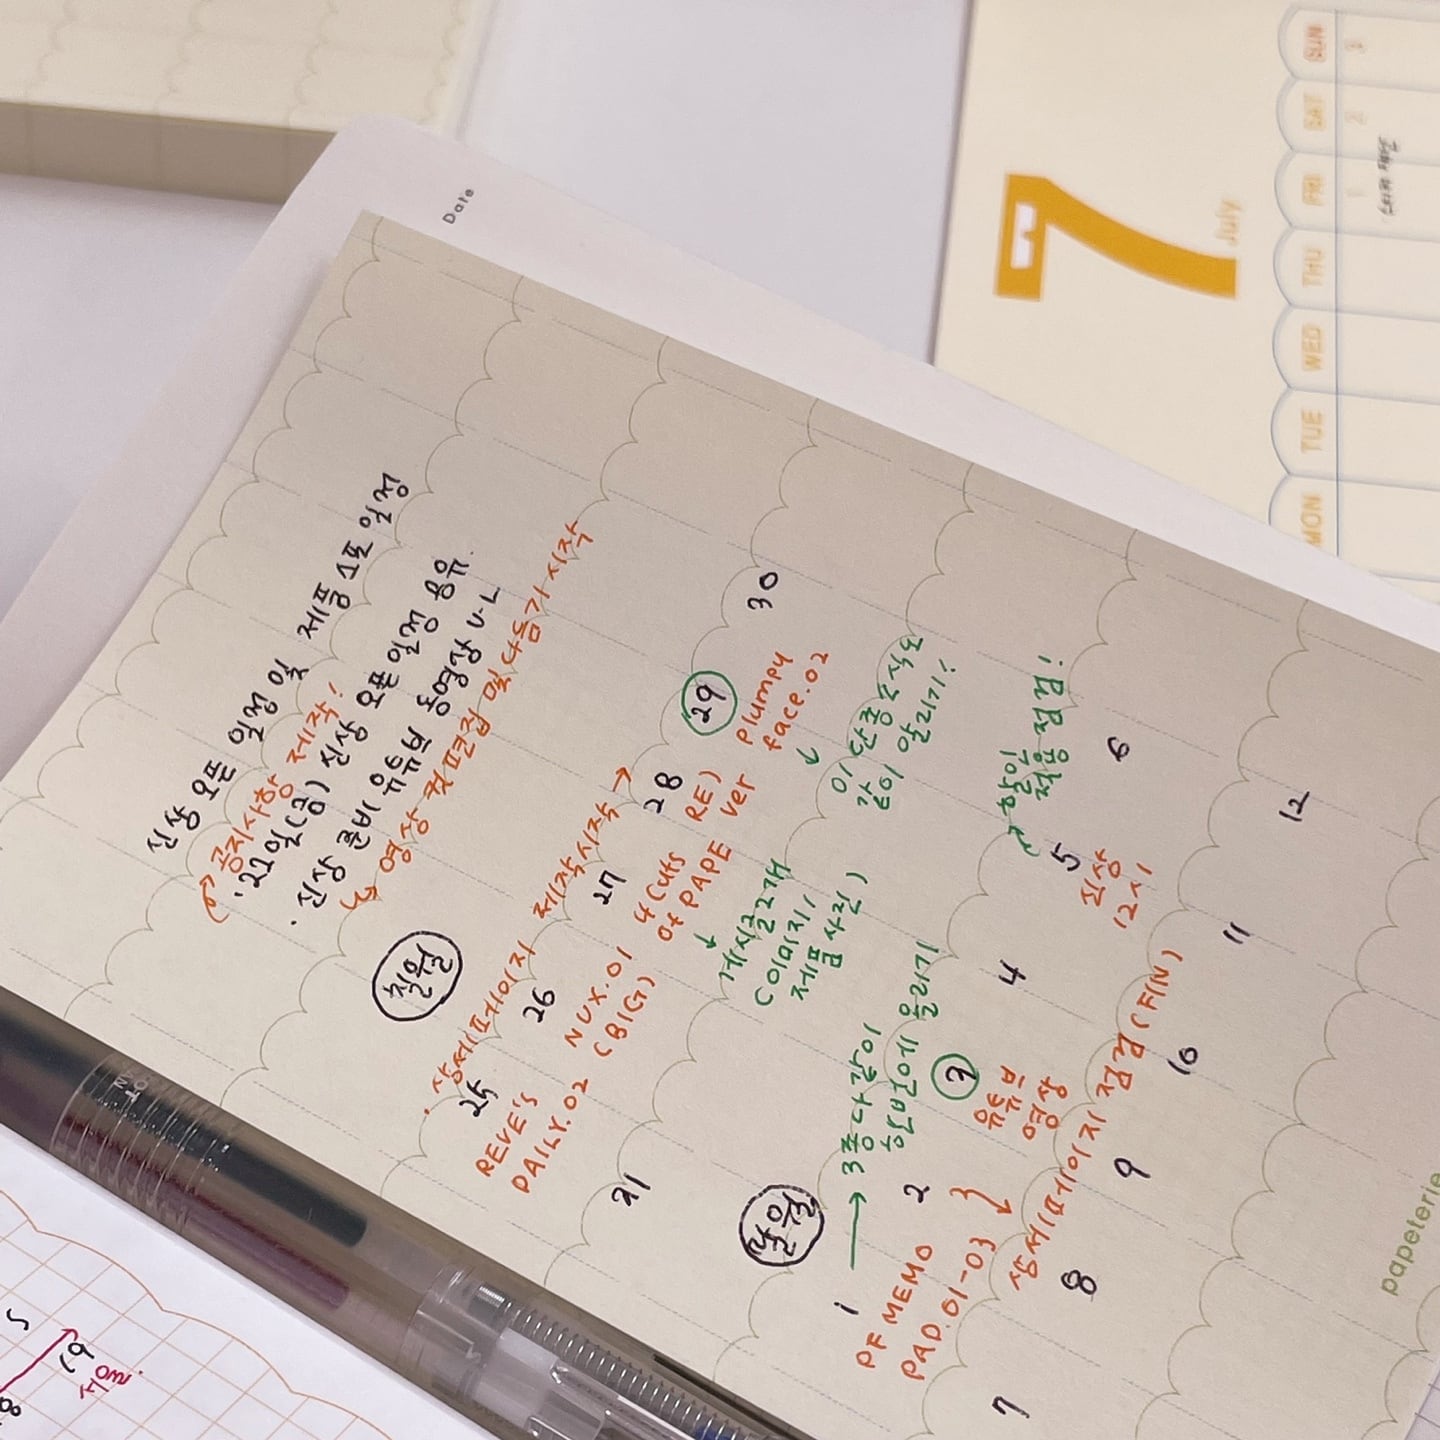 Date
신상 오픈 일정 및 제품 스포 일정
공지사항 제작!
·22일(금) 신상 오픈 일정 공유.
· 신상 준비 유튜브 동영상 U-L
영상 컷편집 및 다듬기 시작
칠월
· 상세페이지 제작시작 →
25 26 27 28 29 30
REVE'S
DAILY.02
NUX.01
(BIG)
4 cuts
of PAPE
RE)
ver
plumpy
face.02
↓
게시글 2개
(이미지,
제품사진)
↓
이 단종소식도
같이 알리기!
31
팔월
→ 3종 다같이
한번에 올리기
확인
점검!
1 2 3 4 5 6
PF MEMO
PAD.01-03
유튜브
영상
신상
12시
상세페이지 점검(FIN)
7 8 9 10 11 12
papeterie
7
July
MON TUE WED THU FRI SAT SUN
1 2 3
5
6)
8
세운.